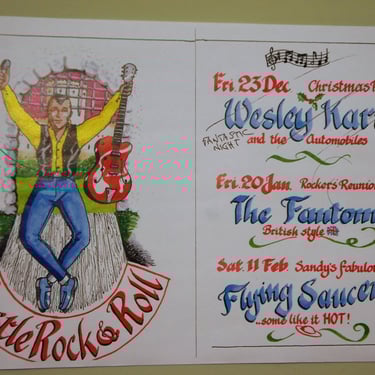 Rock & Roll
Fri 23 Dec Christmas
Wesley
FANTASTIC
NIGHT
and the Automobiles
Fri. 20 Jan. Rockers Reunion
The
British style
Sat. 11 Feb. Sandy's
Flying
..some like it HOT!